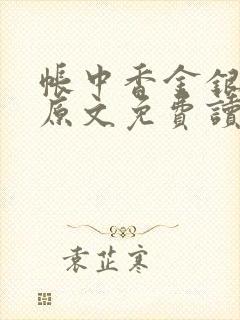 帳中香金銀
原文免費讀
袁芷寒